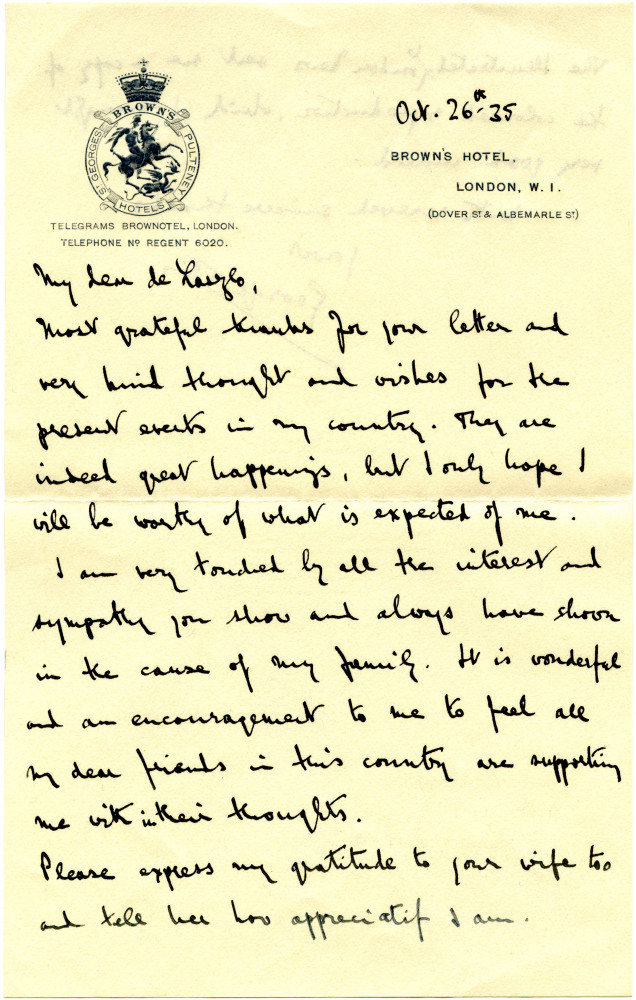 Oct. 26th 35
BROWN'S
ST GEORGES
PULTENEY
HOTELS
BROWN'S HOTEL,
LONDON, W. 1.
(DOVER ST & ALBEMARLE ST)
TELEGRAMS BROWNOTEL, LONDON.
TELEPHONE No REGENT 6020.
My dear de Laszlo,
Most grateful thanks for your letter and
very kind thought and wishes for the
present events in my country. They are
indeed great happenings, but I only hope I
will be worthy of what is expected of me.
I am very touched by all the interest and
sympathy you show and always have shown
in the cause of my family. It is wonderful
and an encouragement to me to feel all
my dear friends in this country are supporting
me with in their thoughts.
Please express my gratitude to your wife too
and tell her how appreciatif I am.